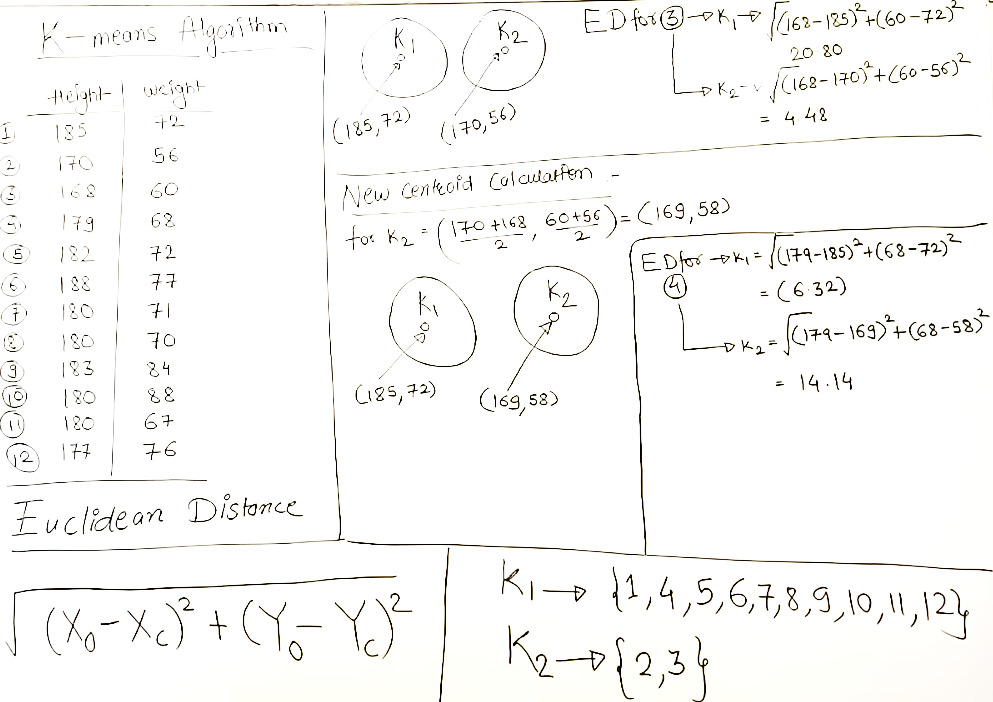 K-means Algorithm
Height weight
① 185 72
② 170 56
③ 168 60
④ 179 68
⑤ 182 72
⑥ 188 77
⑦ 180 71
⑧ 180 70
⑨ 183 84
⑩ 180 88
⑪ 180 67
⑫ 177 76
Euclidean Distance
√(X₀-X꜀)²+(Y₀-Y꜀)²
K₁ K₂
(185,72) (170,56)
ED for ③ → K₁ → √(168-185)²+(60-72)²
20 80
→ K₂ - √(168-170)²+(60-56)²
= 4.48
New Centroid Calculation -
for K₂ = (170+168/2, 60+56/2) = (169,58)
K₁ K₂
(185,72) (169,58)
ED for → K₁ = √(179-185)²+(68-72)²
④ = (6.32)
→ K₂ = √(179-169)²+(68-58)²
= 14.14
K₁ → {1,4,5,6,7,8,9,10,11,12}
K₂ → {2,3}